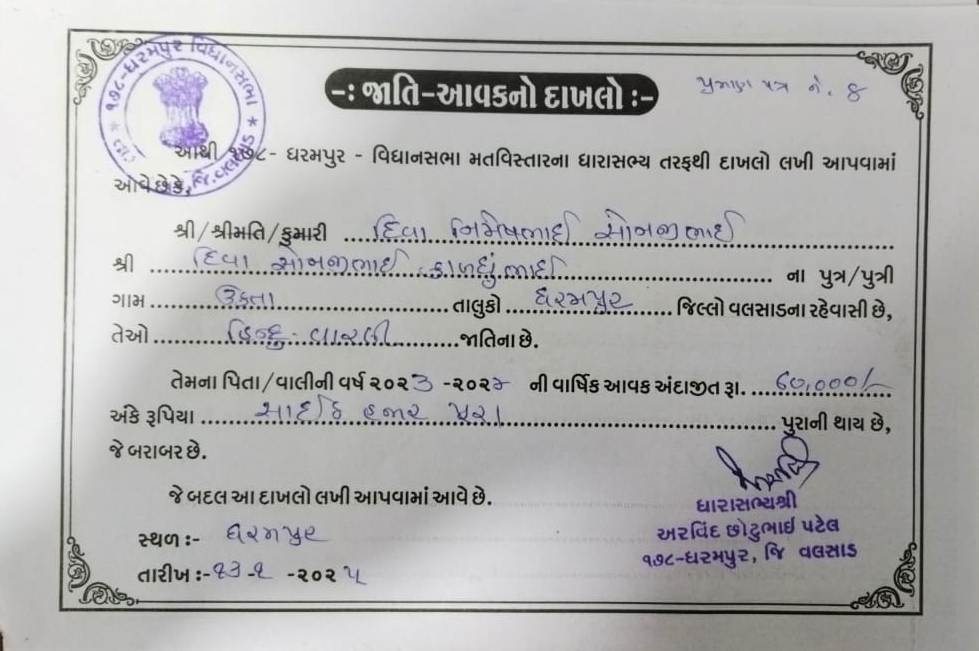 ૧૭૮-ધરમપુર વિધાનસભા
જિ. વલસાડ
-: જાતિ-આવકનો દાખલો :-
પ્રમાણ પત્ર નં. ૪
આથી ૧૭૮- ધરમપુર - વિધાનસભા મતવિસ્તારના ધારાસભ્ય તરફથી દાખલો લખી આપવામાં
આવે છે કે,
શ્રી/શ્રીમતિ/કુમારી દિવા નિમેષભાઈ સોનજીભાઈ
શ્રી દિવા સોનજીભાઈ ના પુત્ર/પુત્રી
ગામ ઉકતા તાલુકો ધરમપુર જિલ્લો વલસાડના રહેવાસી છે,
તેઓ હિન્દુ-વારલી જાતિના છે.
તેમના પિતા/વાલીની વર્ષ ૨૦૨૩ -૨૦૨૪ ની વાર્ષિક આવક અંદાજીત રૂા. ૬૦,૦૦૦/-
અંકે રૂપિયા સાઈઠ હજાર પુરા પુરાની થાય છે,
જે બરાબર છે.
જે બદલ આ દાખલો લખી આપવામાં આવે છે.
ધારાસભ્યશ્રી
અરવિંદ છોટુભાઈ પટેલ
૧૭૮-ધરમપુર, જિ વલસાડ
સ્થળ:- ધરમપુર
તારીખ:-૧૩-૧ -૨૦૨૫